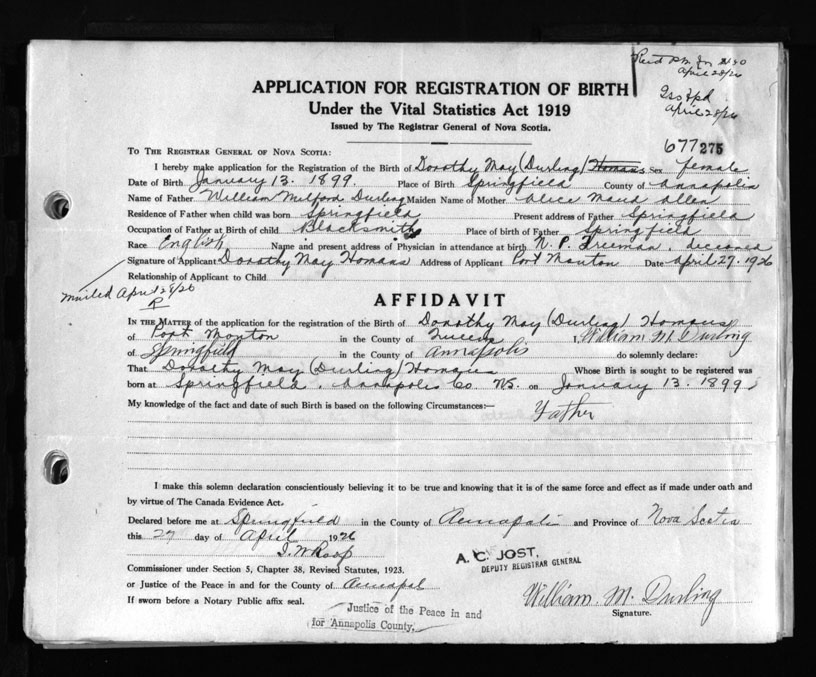 April 28/26
APPLICATION FOR REGISTRATION OF BIRTH
Under the Vital Statistics Act 1919
April 28/26
Issued by The Registrar General of Nova Scotia.
677275
TO THE REGISTRAR GENERAL OF NOVA SCOTIA:
I hereby make application for the Registration of the Birth of Dorothy May (Durling) Homans Sex female
Date of Birth January 13. 1899. Place of Birth Springfield County of Annapolis
Name of Father William Milford Durling Maiden Name of Mother Alice Maud Allen
Residence of Father when child was born Springfield Present address of Father Springfield
Occupation of Father at Birth of child Blacksmith Place of birth of Father Springfield
Race English Name and present address of Physician in attendance at birth N. P. Freeman, deceased
Signature of Applicant Dorothy May Homans Address of Applicant Port Mouton Date April 27. 1926
Relationship of Applicant to Child
mailed April 28/26
R
AFFIDAVIT
IN THE MATTER of the application for the registration of the Birth of Dorothy May (Durling) Homans
of Port Monton in the County of Queens I, William M. Durling
of Springfield in the County of Annapolis do solemnly declare:
That Dorothy May (Durling) Homans Whose Birth is sought to be registered was
born at Springfield, Annapolis Co. N.S. on January 13. 1899
My knowledge of the fact and date of such Birth is based on the following Circumstances:—
Father
I make this solemn declaration conscientiously believing it to be true and knowing that it is of the same force and effect as if made under oath and
by virtue of The Canada Evidence Act.
Declared before me at Springfield in the County of Annapolis and Province of Nova Scotia
this 27 day of April 1926
J. W Roop
A. C. JOST,
DEPUTY REGISTRAR GENERAL
Commissioner under Section 5, Chapter 38, Revised Statutes, 1923.
or Justice of the Peace in and for the County of Annapol
William. M. Durling
If sworn before a Notary Public affix seal.
Signature.
Justice of the Peace in and
for Annapolis County.